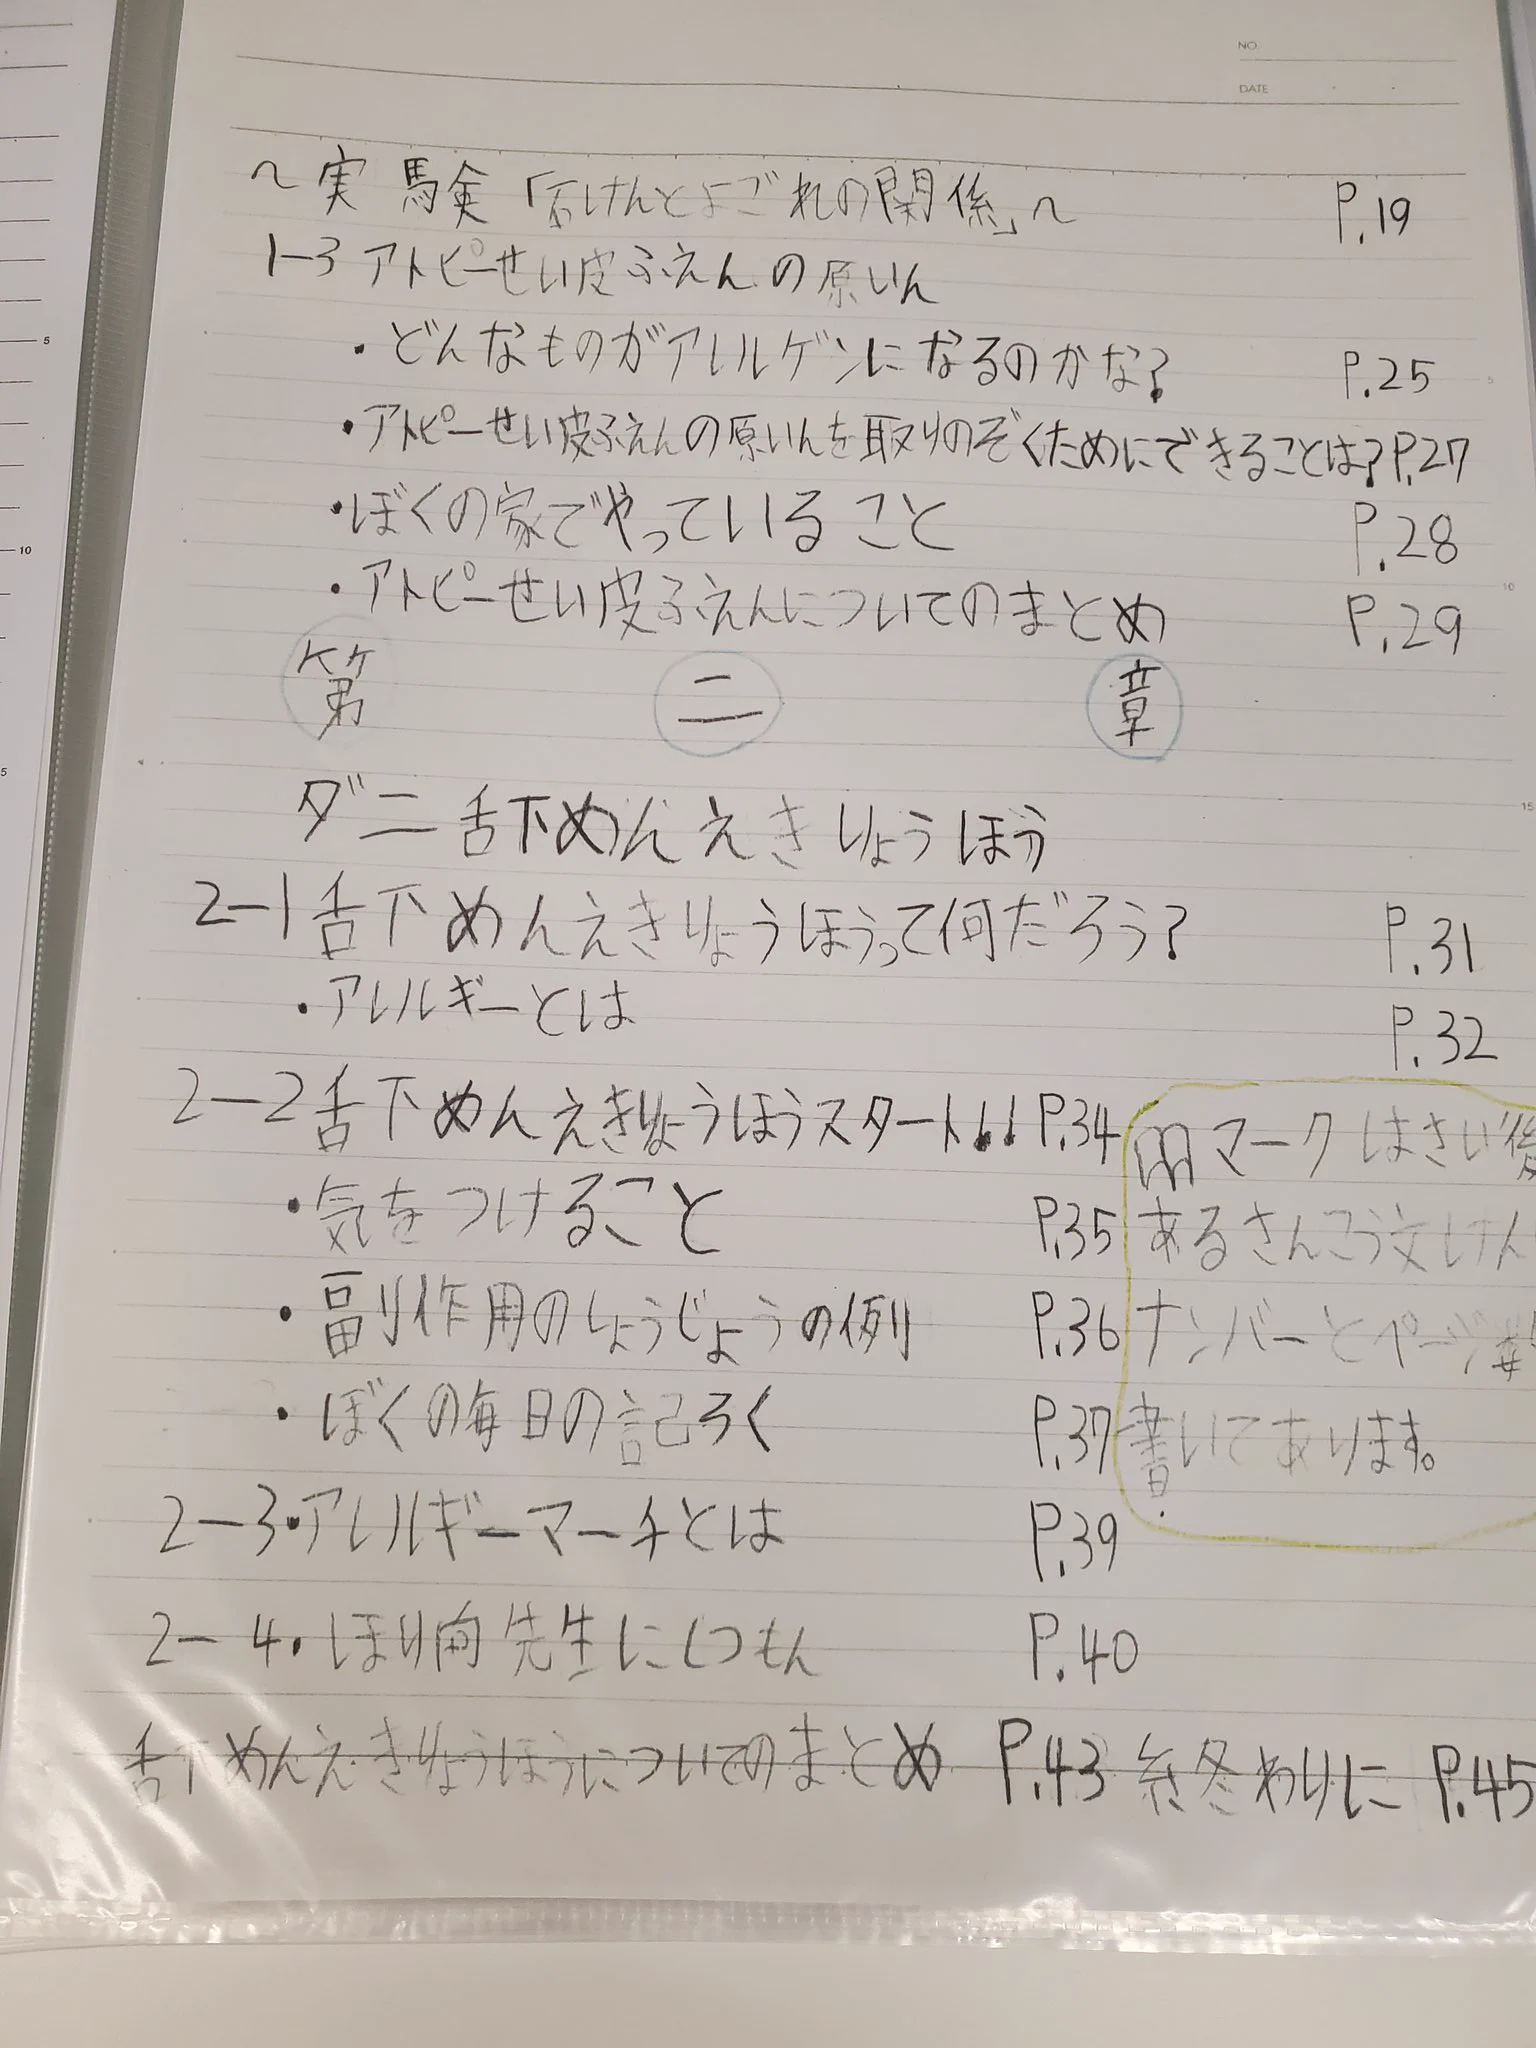 NO.
DATE
～実験「石けんとよごれの関係」～ P.19
1-3 アトピーせい皮ふえんの原いん
・どんなものがアレルゲンになるのかな? P.25
・アトピーせい皮ふえんの原いんを取りのぞくためにできることは? P.27
・ぼくの家でやっていること P.28
・アトピーせい皮ふえんについてのまとめ P.29
第 二 章
ダニ舌下めんえきりょうほう
2-1 舌下めんえきりょうほうって何だろう? P.31
・アレルギーとは P.32
2-2 舌下めんえきりょうほうスタート!! P.34
・気をつけること P.35
・副作用のしょうじょうの例 P.36
・ぼくの毎日の記ろく P.37
2-3・アレルギーマーチとは P.39
2-4・ほり向先生にしつもん P.40
舌下めんえきりょうほうについてのまとめ P.43 終わりに P.45
マークはさい後
あるさんこう文けん
ナンバーとページ数
書いてあります。
5
10
15
5
10
5